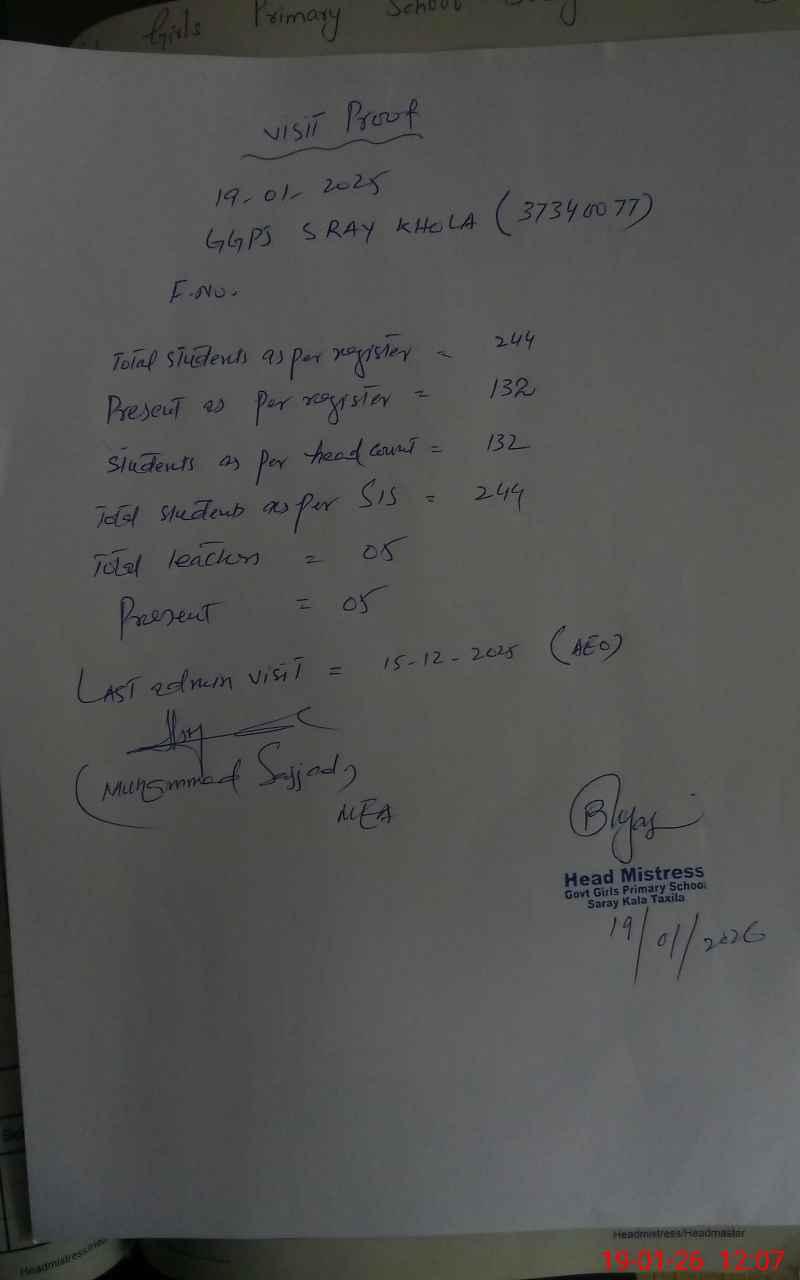 Girls Primary School
Visit Proof
19-01-2025
GGPS SRAY KHOLA (37340077)
F.No.
Total students as per register = 244
Present as per register = 132
Students as per head count = 132
Total students as per SIS = 244
Total teachers = 05
Present = 05
LAST admin visit = 15-12-2025 (AEO)
(Muhammad Sajjad)
MEA
Head Mistress
Govt Girls Primary School
Saray Kala Taxila
19/01/2026
Headmistress/Headmaster
Headmistress/Hea
19-01-26 12:07